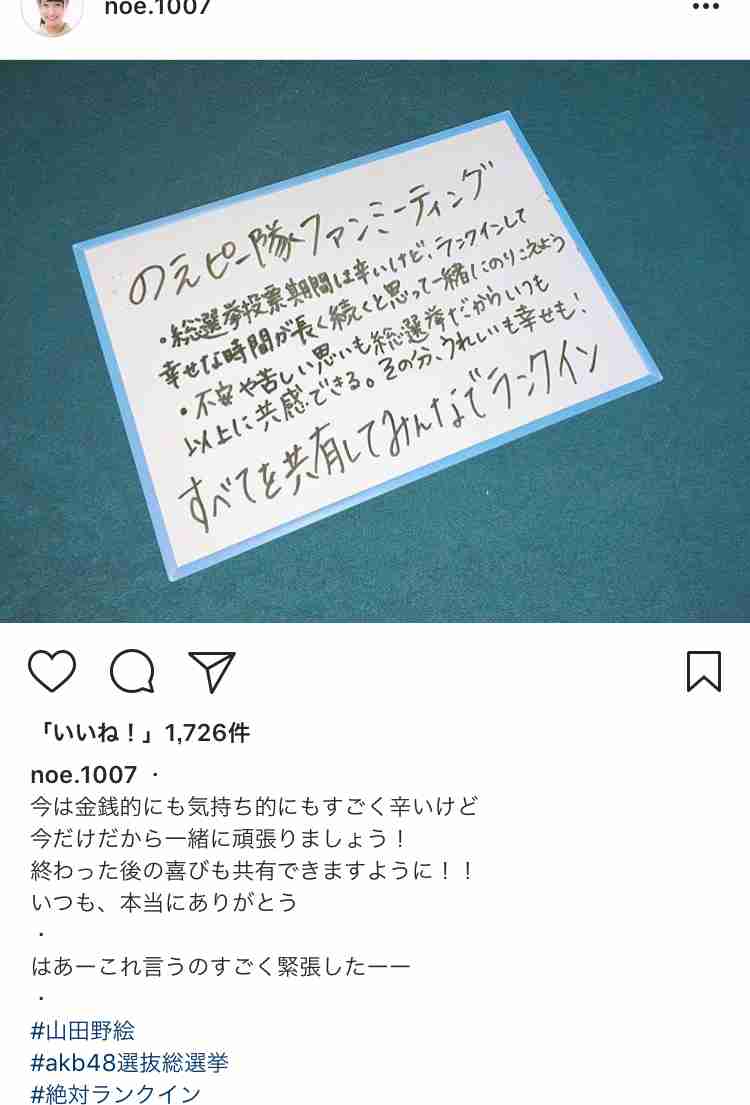 noe.1007
のえピー隊ファンミーティング
・総選挙投票期間は辛いけど、ランクインして
幸せな時間が長く続くと思って一緒にのりこえよう
・不安や苦しい思いも総選挙だからいつも
以上に共感できる。その分、うれしいも幸せも!
すべてを共有してみんなでランクイン
「いいね！」1,726件
noe.1007 ・
今は金銭的にも気持ち的にもすごく辛いけど
今だけだから一緒に頑張りましょう！
終わった後の喜びも共有できますように！！
いつも、本当にありがとう
・
はあーこれ言うのすごく緊張したーー
・
#山田野絵
#akb48選抜総選挙
#絶対ランクイン